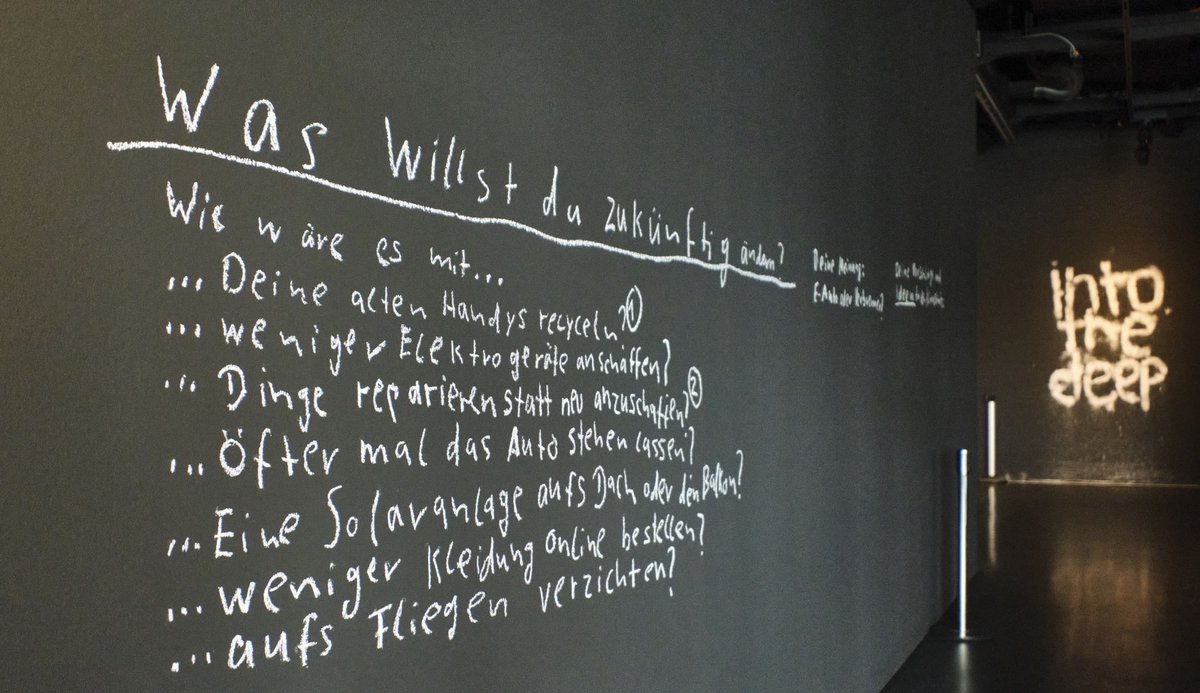 Was willst du zukünftig ändern?
Wie wäre es mit...
... Deine alten Handys recyceln? ①
... weniger Elektrogeräte anschaffen?
... Dinge reparieren statt neu anzuschaffen? ②
... Öfter mal das Auto stehen lassen?
... Eine Solaranlage aufs Dach oder den Balkon?
... weniger Kleidung online bestellen?
... aufs Fliegen verzichten?
Deine Meinung:
E-Auto oder
Deine
into
the
deep